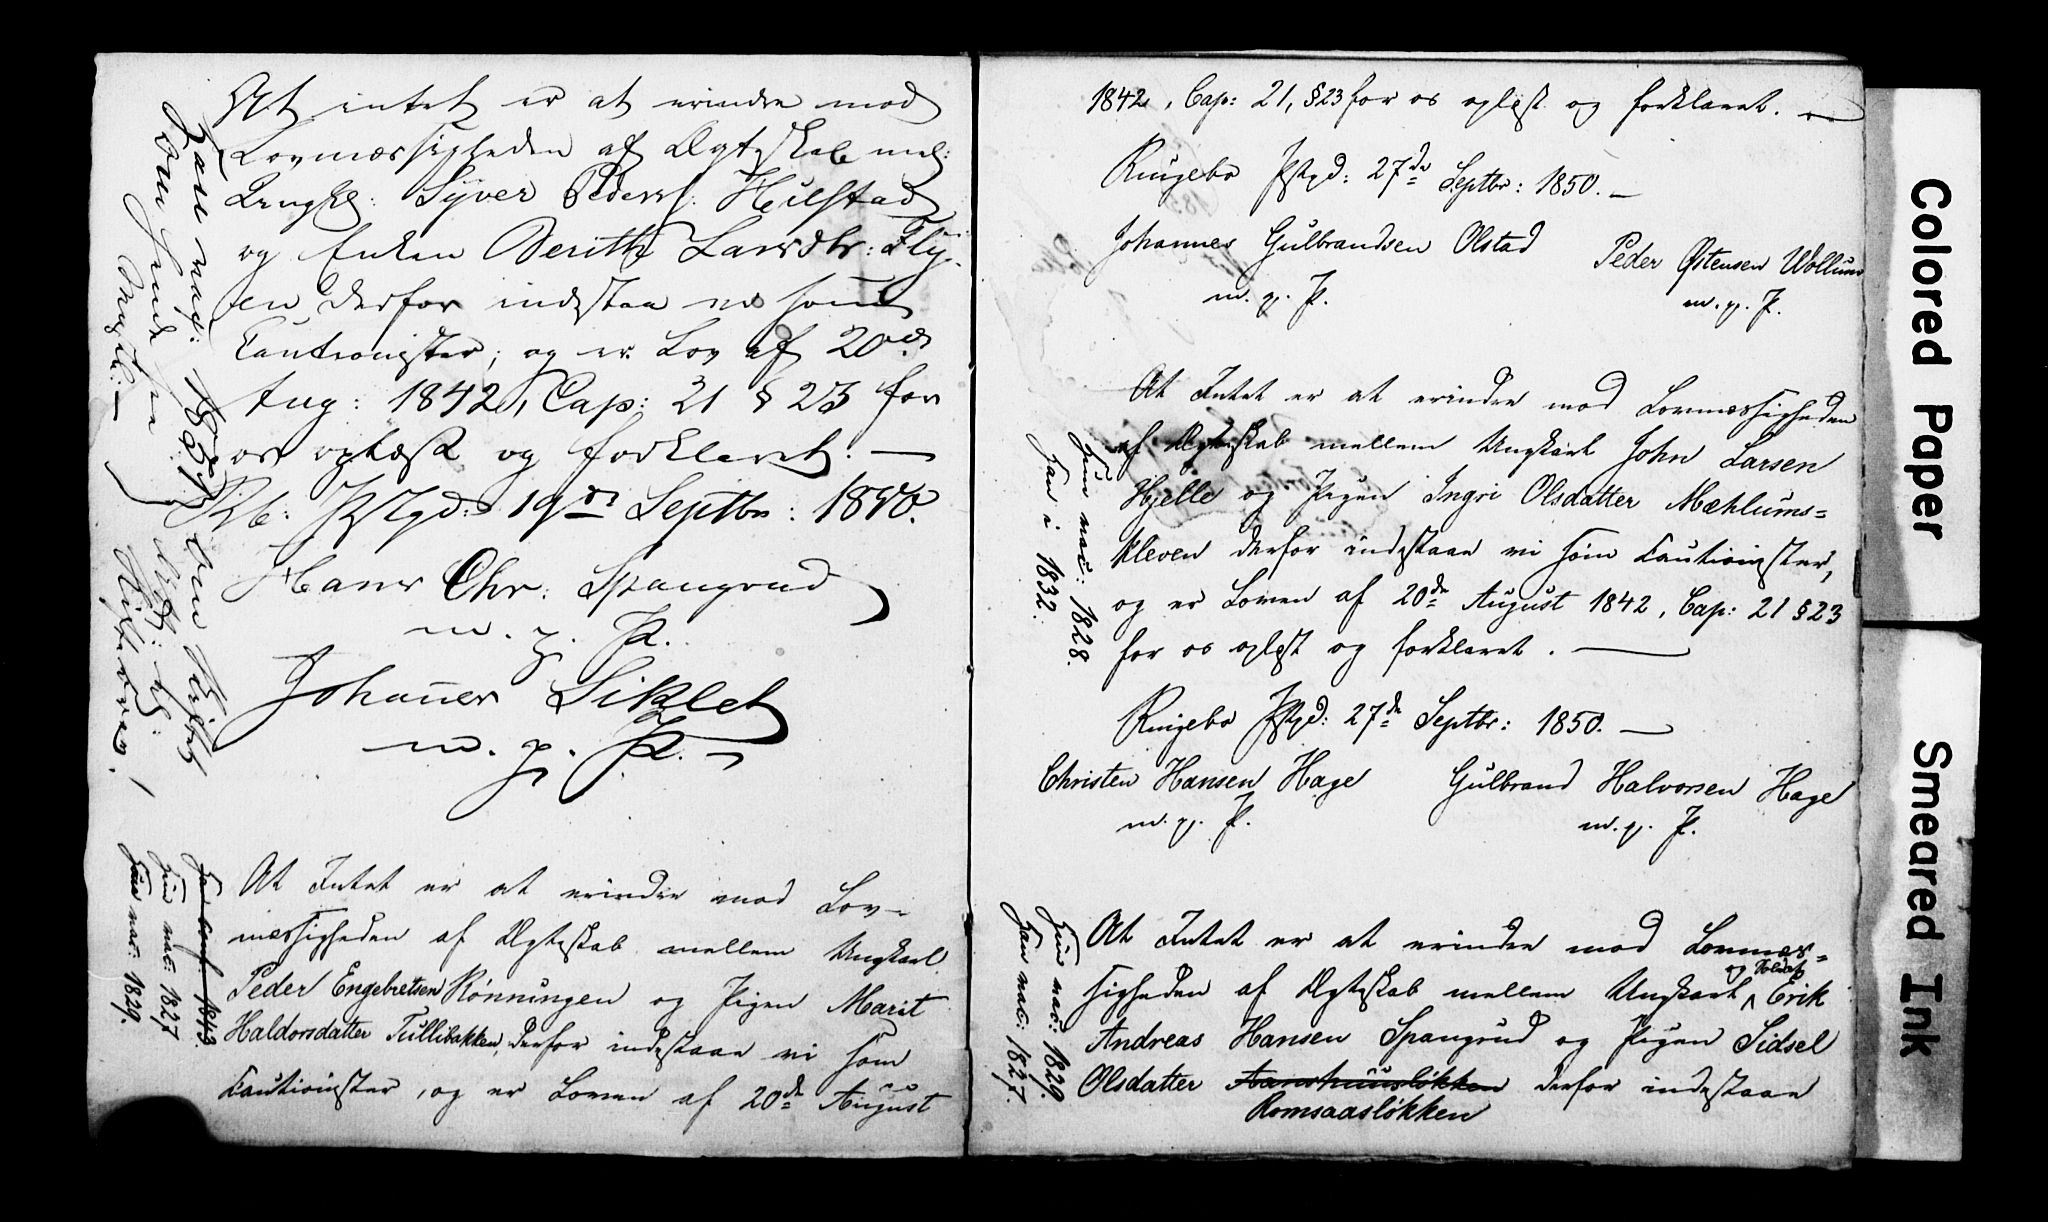 At intet er at erindre mod
Lovmæssigheden af Ægteskab mel:
Ungkl: Syver Peders. Hulstad
og Enken Berithe Larsdtr: Fly-
en, derfor indestaa vi som
Cautionister, og er Lov af 20de
Aug: 1842, Cap: 21 § 23 for
os oplæst og forklaret. —
Rb: Pstgd: 19de Septbr: 1850.
Hans Chr. Spangrud
m. p. P.
Johannes Siklet
m. p. P.
Han vac: 1851
At Intet er at erindre mod Lov-
mæssigheden af Ægteskab mellem Ungkarl
Peder Engebretsen Rönningen og Pigen Marit
Haldorsdatter Tullibakken, derfor indestaae vi som
Cautionister, og er Loven af 20de August
Hun vac: 1827
Han vac: 1829.
1842, Cap: 21, § 23 for os oplæst og forklaret. —
Ringebo Pstgd: 27de Septbr: 1850. —
Johannes Gulbrandsen Olstad Peder Østensen Wollum
m. p. P. m. p. P.
At Intet er at erindre mod Lovmæssigheden
af Ægteskab mellem Ungkarl John Larsen
Hjelle og Pigen Ingri Olsdatter Mæhlums=
kleven derfor indestaae vi som Cautionister,
og er Loven af 20de August 1842, Cap: 21 § 23
for os oplæst og forklaret. —
Ringebo Pstgd: 27de Septbr: 1850. —
Christen Hansen Hage Gulbrand Halvorsen Hage
m. p. P. m. p. P.
Hun vac: 1828.
Han i 1832.
At Intet er at erindre mod Lovmæs=
sigheden af Ægteskab mellem Ungkarl og Soldat Erik
Andreas Hansen Spangrud og Pigen Sidsel
Olsdatter Aanshuusløkken derfor indestaae
Romsaasløkken
Hun vac: 1829.
Han vac: 1827.
Colored Paper
Smeared Ink